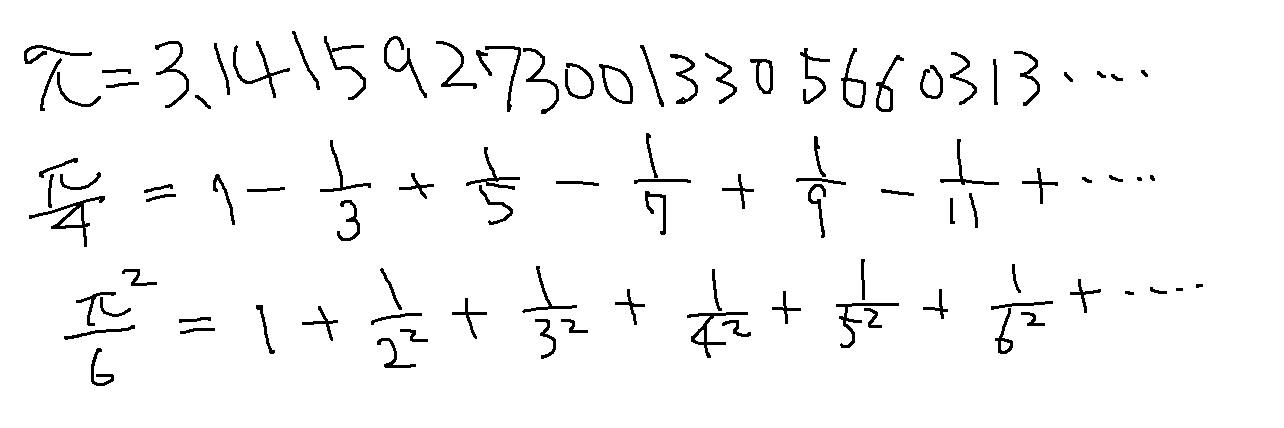 π=3.141592730013305660313‥‥
π/4 = 1 - 1/3 + 1/5 - 1/7 + 1/9 - 1/11 + ‥‥
π²/6 = 1 + 1/2² + 1/3² + 1/4² + 1/5² + 1/6² + ‥‥